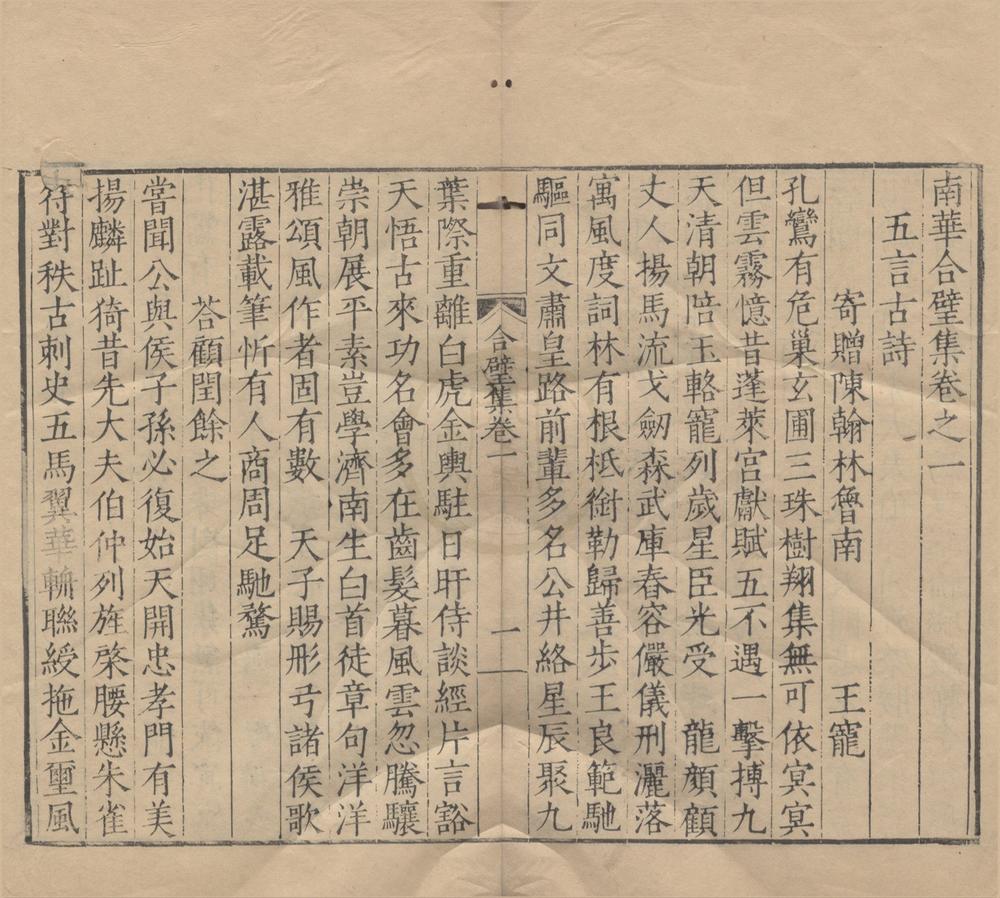 南華合璧集卷之一
五言古詩
寄贈陳翰林魯南 王寵
孔鸞有危巢玄圃三珠樹翔集無可依冥冥
但雲霧憶昔蓬萊宮獻賦五不遇一擊搏九
天清朝陪玉輅寵列歲星臣光受 龍顏顧
丈人揚馬流戈劒森武庫春容儼儀刑灑落
寓風度詞林有根柢銜勒歸善步王良範馳
驅同文肅皇路前輩多名公井絡星辰聚九
合璧集卷一 一
葉際重離白虎金輿駐日旰侍談經片言豁
天悟古來功名會多在齒髮暮風雲忽騰驤
崇朝展平素豈學濟南生白首徒章句洋洋
雅頌風作者固有數 天子賜彤弓諸侯歌
湛露載筆忻有人商周足馳騖
荅顧閏餘之
甞聞公與侯子孫必復始天開忠孝門有美
揚麟趾猗昔先大夫伯仲列旌棨腰懸朱雀
符對秩古刺史五馬翼華輈聯綬拖金璽風